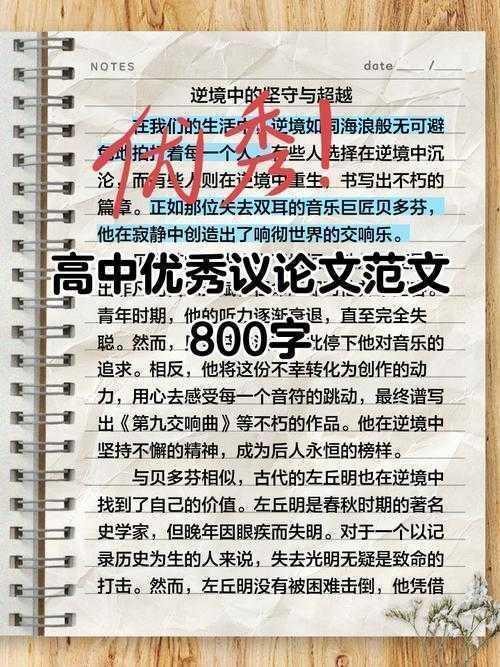 NOTES
date ___ / ___
逆境中的坚守与超越
在我们的生活中,逆境如同海浪般无可避
免地拍打着每一个人。有些人选择在逆境中沉
沦,而有些人则在逆境中重生,书写出不朽的
篇章。正如那位失去双耳的音乐巨匠贝多芬,
他在寂静中创造出了响彻世界的交响乐。
优秀!
高中优秀议论文范文
800字
青年时期,他的听力逐渐衰退,直至完全失
聪。然而,此停下他对音乐的
追求。相反,他将这份不幸转化为创作的动
力,用心去感受每一个音符的跳动,最终谱写
出《第九交响曲》等不朽的作品。他在逆境中
坚持不懈的精神,成为后人永恒的榜样。
与贝多芬相似,古代的左丘明也在逆境中
找到了自己的价值。左丘明是春秋时期的著名
史学家,但晚年因眼疾而失明。对于一个以记
录历史为生的人来说,失去光明无疑是致命的
打击。然而,左丘明没有被困难击倒,他凭借